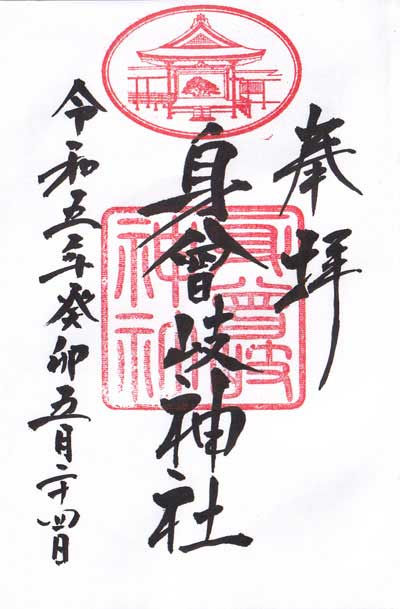 奉拝
身曾岐神社
身曾岐神社
令和五年癸卯五月二十四日